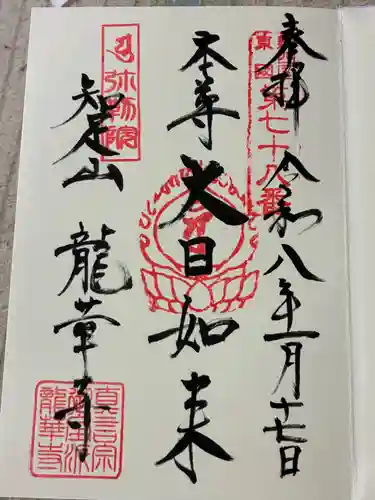 奉拝 令和八年一月十七日
東国
第七十八番
本尊 大日如来
弥勒院
知足山 龍華寺
真言宗
龍華寺